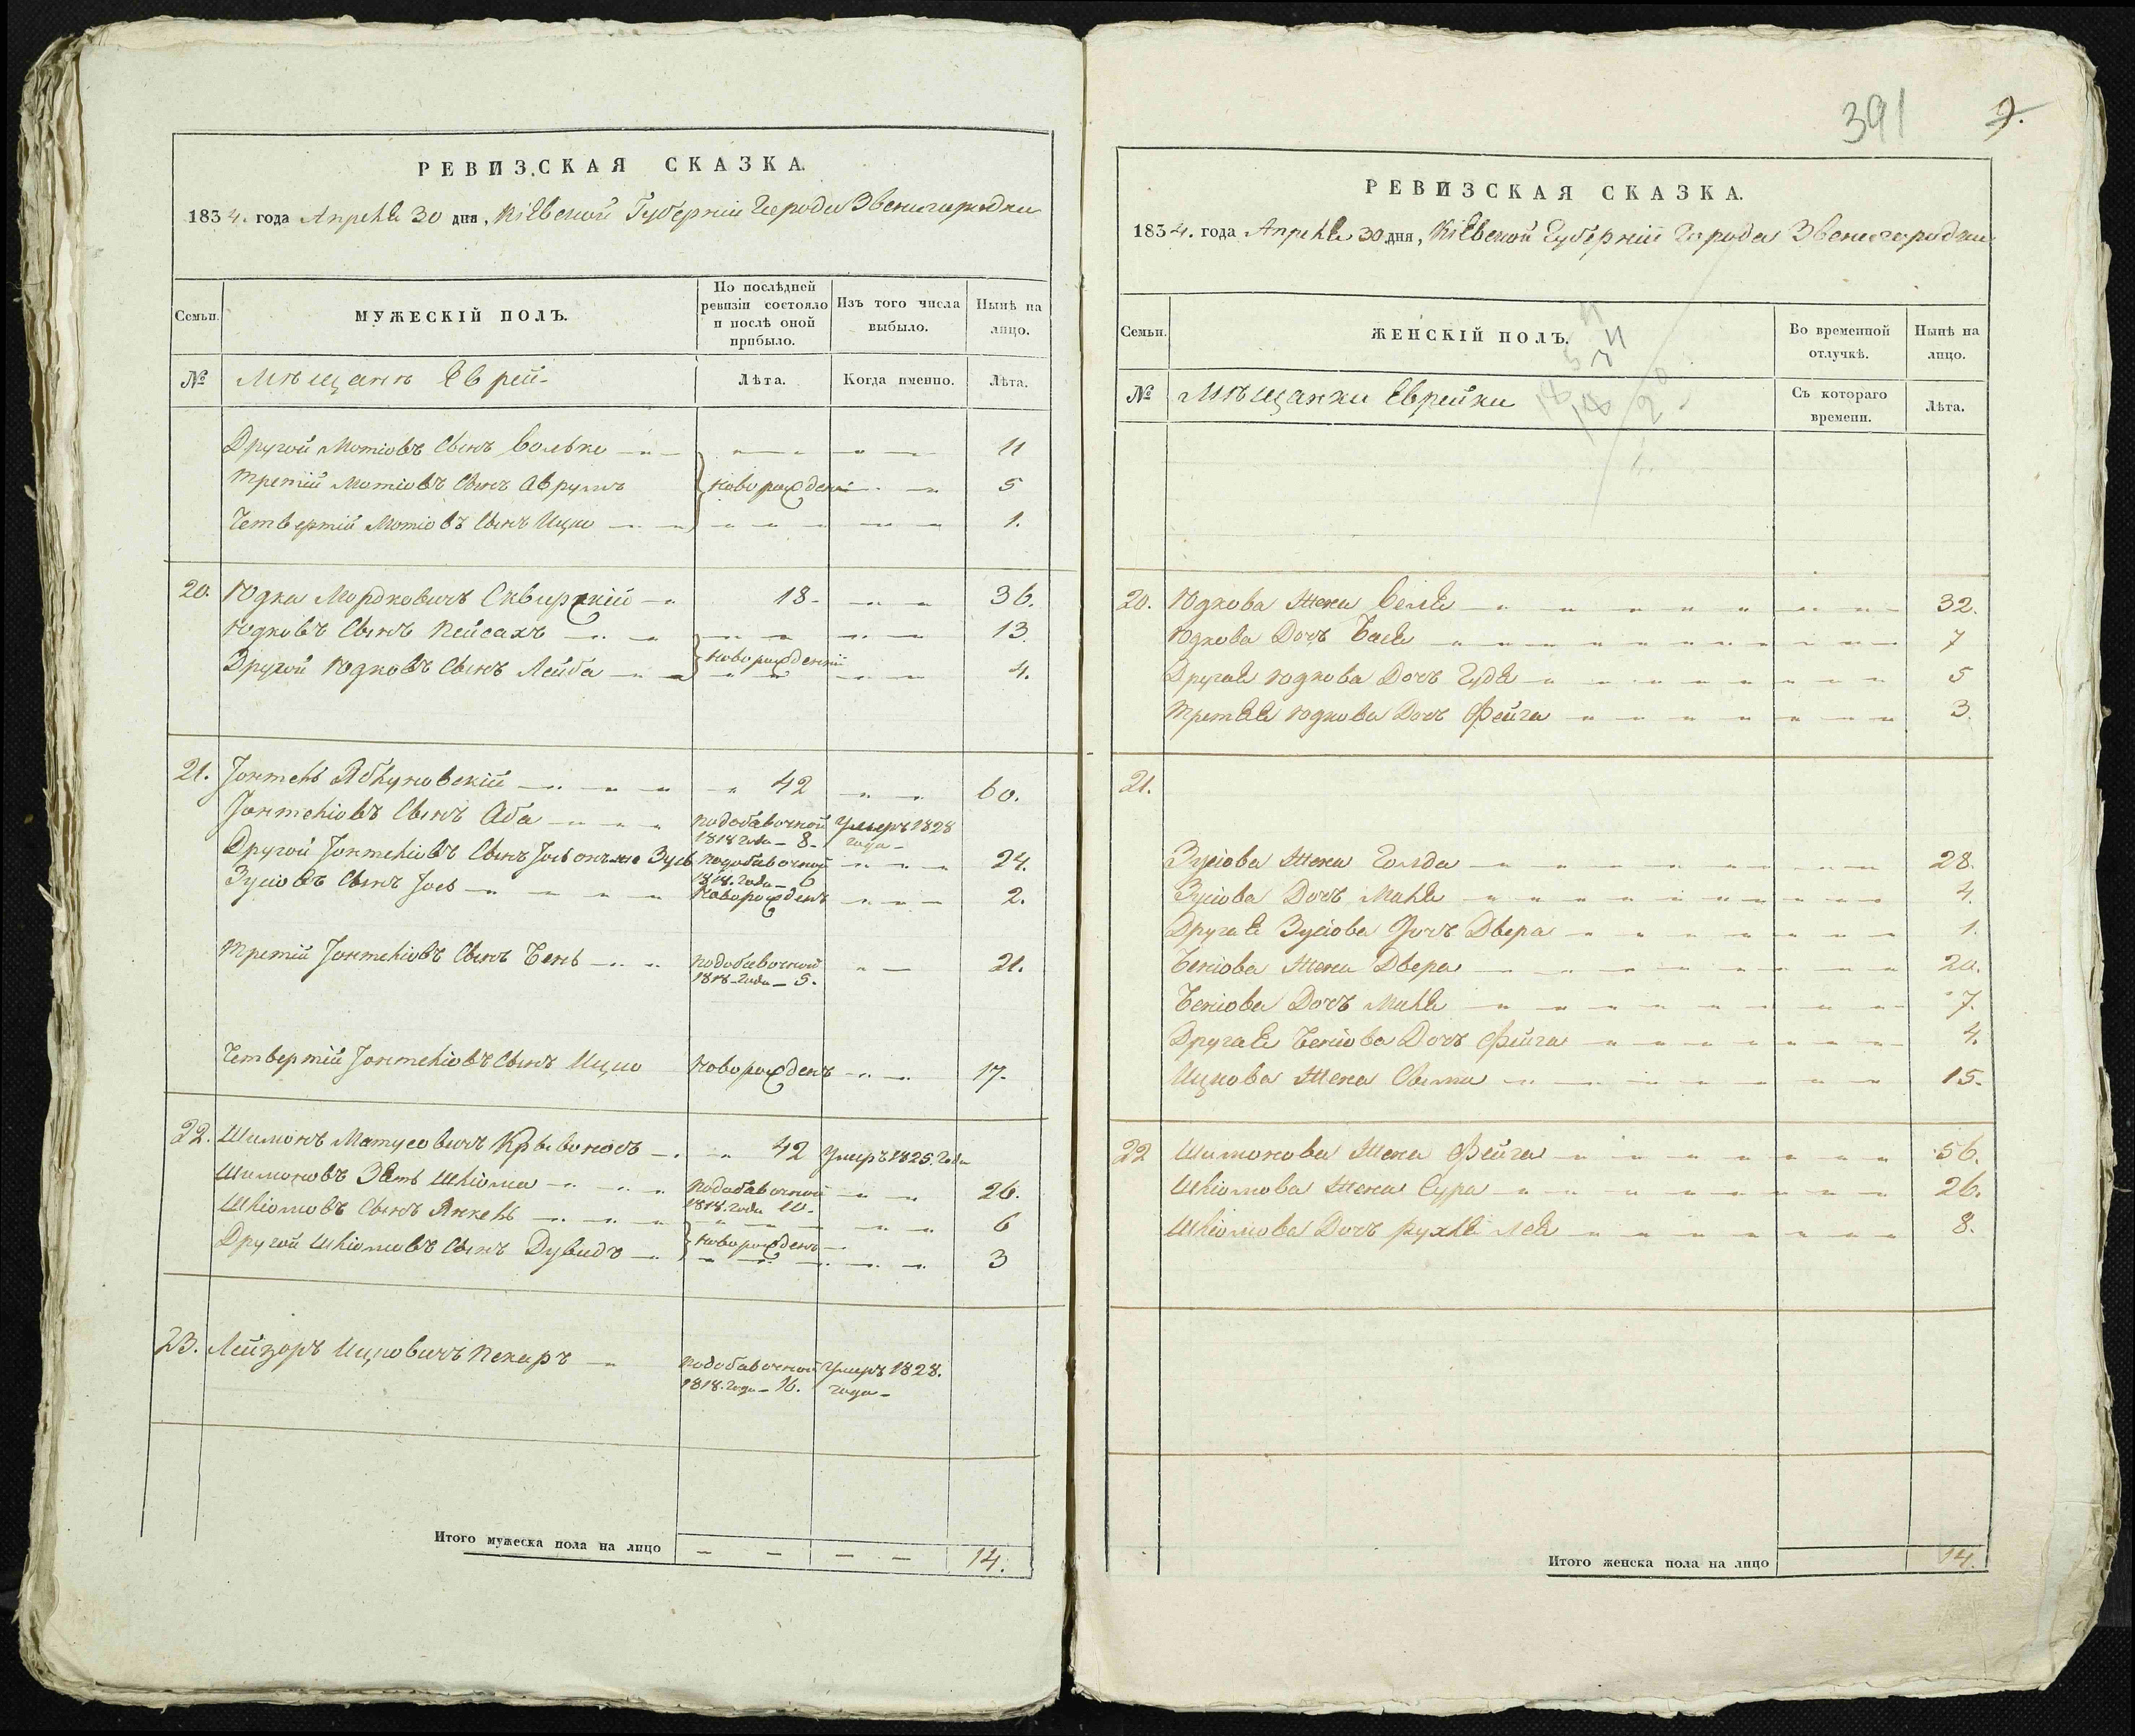 РЕВИЗСКАЯ СКАЗКА.
1834. года Апреля 30 дня, Кіевской Губерніи Города Звенигородки
Семьи.
МУЖЕСКІЙ ПОЛЪ.
По послѣдней ревизіи состояло и послѣ оной прибыло.
Изъ того числа выбыло.
Нынѣ на лицо.
№ Мѣщанъ Еврей
Лѣта.
Когда именно.
Лѣта.
Другой Мотіовъ Сынъ Волько 11
Третій Мотіовъ Сынъ Аврумъ новорожденіи 5
Четвертій Мотіовъ Сынъ Ицко 1.
20. Юдка Мордковичъ Сквирскій 18 - 36.
Юдковъ Сынъ Пейсахъ 13.
Другой Юдковъ Сынъ Лейба новорожденніи 4.
21. Іонтель Яблуновскій 42 60.
Іонтеліовъ Сынъ Аба подобавочной 1818 года - 8. Умеръ 1828 года -
Другой Іонтеліовъ Сынъ Іось онъже Зусь подобавочной 1818. года - 6 24.
Зусіовъ Сынъ Іось новорожденъ 2.
Третій Іонтеліовъ Сынъ Бень подобавочной 1818 - года - 5. 21.
Четвертій Іонтеліовъ Сынъ Ицко новорожденъ 17.
22. Шимонъ Матусовичъ Кривоносъ 42 Умеръ 1825. года
Шимоновъ Зять Шліома подобавочной 1818. года 10. 26.
Шліомовъ Сынъ Янкель 6
Другой Шліомовъ Сынъ Дувидъ новорожденъ 3
23. Лейзоръ Ицковичъ Пекаръ подобавочной 1818. года - 16. Умеръ 1828. года -
Итого мужеска пола на лицо 14.
391 9.
РЕВИЗСКАЯ СКАЗКА.
1834. года Апреля 30 дня, Кіевской Губерніи Города Звенигородки
Семьи.
ЖЕНСКІЙ ПОЛЪ.
Во временной отлучкѣ.
Нынѣ на лицо.
№ Мѣщанки Еврейки
Съ котораго времени.
Лѣта.
20. Юдкова Жена Бейля 32.
Юдкова Дочъ Бася 7
Другая Юдкова Дочъ Гудя 5
Третяя Юдкова Дочъ Фейга 3.
21.
Зусіова Жена Гольда 28.
Зусіова Дочъ Маля 4.
Другая Зусіова Дочъ Двера 1.
Беніова Жена Двера 20.
Беніова Дочъ Маля 7.
Другая Беніова Дочъ Фейга 4.
Ицкова Жена 15.
22 Шимонова Жена Фейга 56.
Шліомова Жена Сура 26.
Шліомова Дочъ Рухля Лея 8.
Итого женска пола на лицо 14.